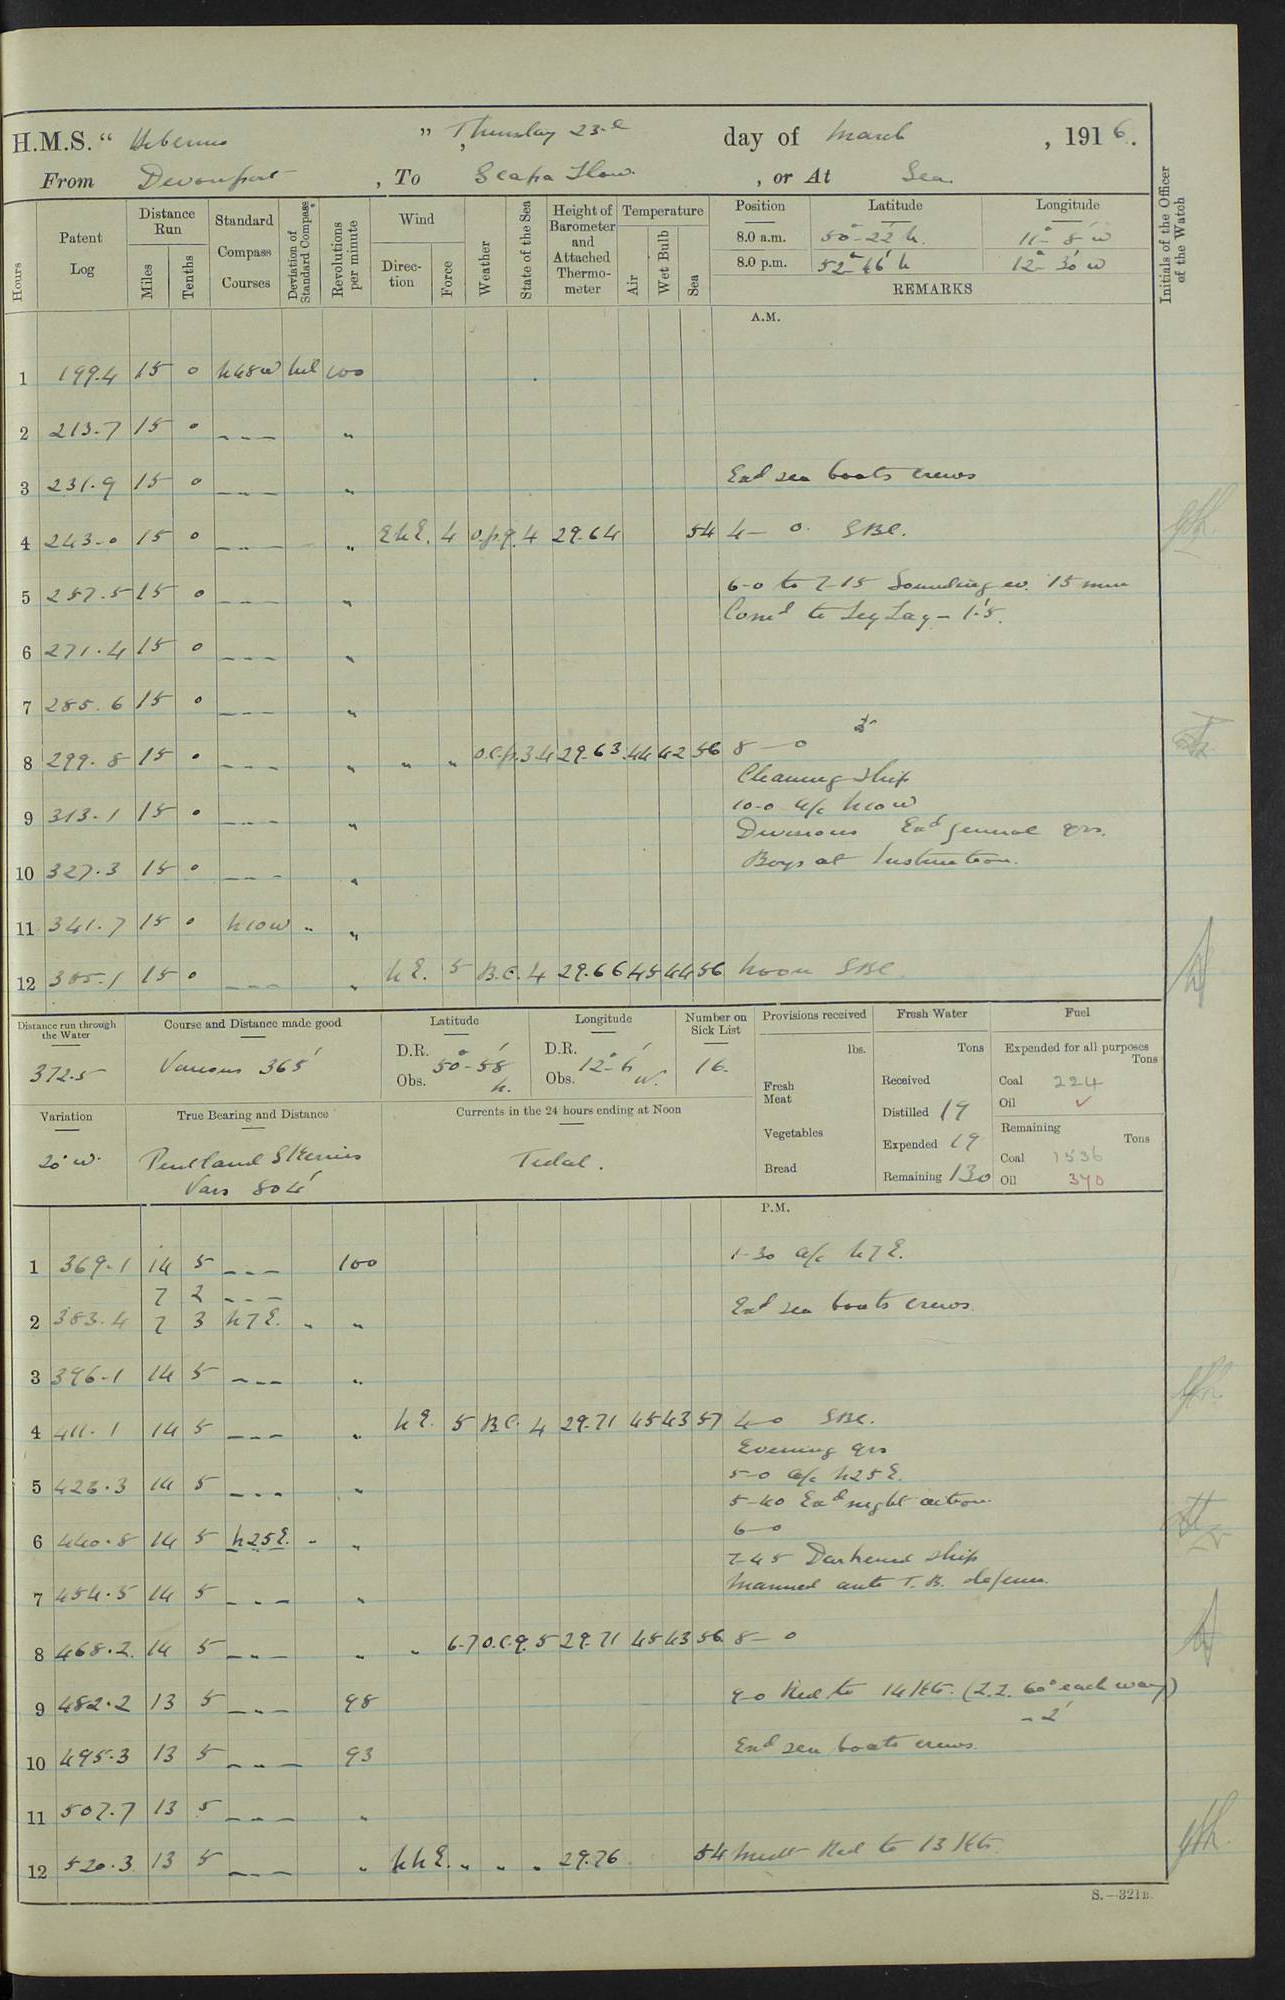 H.M.S. “ Hibernia ” , Thursday 23rd day of March , 1916.
From Devonport , To Scapa Flow , or At Sea.
Hours
Patent Log
Distance Run
Miles
Tenths
Standard Compass Courses
Deviation of Standard Compass
Revolutions per minute
Wind
Direction
Force
Weather
State of the Sea
Height of Barometer and Attached Thermometer
Temperature
Air
Wet Bulb
Sea
Position Latitude Longitude
8.0 a.m. 50°-22' N. 11°-8' W
8.0 p.m. 52°-46' N 12°-30' W
REMARKS
Initials of the Officer of the Watch
A.M.
1 199.4 15 0 N48W Nil 100
2 213.7 15 0 - - - "
3 231.9 15 0 - - - " Exd sea boats crews
4 243.0 15 0 - - - " ENE. 4 o.p.q. 4 29.64 54 4-0. SBC.
5 257.5 15 0 - - - " 6-0 to 7-15 Sounding ev. 15 min
Comd to Leg Lag - 1'.5.
6 271.4 15 0 - - - "
7 285.6 15 0 - - - "
8 299.8 15 0 - - - " " " o.c.p. 3.4 29.63 44 42 56 8-0
Cleaning Ship
10-0 a/c N10W
9 313.1 15 0 - - - " Divisions Exd general qrs.
10 327.3 15 0 - - - " Boys at Instruction.
11 341.7 15 0 N10W " "
12 355.1 15 0 - - - " NE. 5 B.C. 4 29.66 45 44 56 Noon SBC
Distance run through the Water
372.5
Course and Distance made good
Various 365'
Latitude
D.R. 50°-58'
Obs. N.
Longitude
D.R. 12°-6'
Obs. W.
Number on Sick List
16.
Provisions received
lbs.
Fresh Meat
Vegetables
Bread
Fresh Water
Tons
Received
Distilled 19
Expended 19
Remaining 130
Fuel
Expended for all purposes
Tons
Coal 224
Oil ✓
Remaining
Tons
Coal 1536
Oil 390
Variation
20° W.
True Bearing and Distance
Pentland Skerries
Vars 804'
Currents in the 24 hours ending at Noon
Tidal.
P.M.
1 369.1 14 5 - - - 100 1-30 a/c N7E.
7 2 - - -
2 383.4 7 3 N7E. " " Exd sea boats crews.
3 396.1 14 5 - - - "
4 411.1 14 5 - - - " NE. 5 B.C. 4 29.71 45 43 57 4-0 SBC.
Evening qrs
5 426.3 14 5 - - - " 5-0 a/c N25E.
5-40 Exd night action.
6 440.8 14 5 N25E. " " 6-0
7-45 Darkened ship
7 454.5 14 5 - - - " Manned anti T.B. defence.
8 468.2 14 5 - - - " " 6-7 o.c.q. 5 29.71 45 43 56 8-0
9 482.2 13 5 - - - 98 9-0 Red to 14 Kts. (Z.Z. 60° each way)
- 2'
10 495.3 13 5 - - - 93 Exd sea boats crews.
11 507.7 13 5 - - - "
12 520.3 13 5 - - - " NNE. " " " 29.76 54 Midt Red to 13 Kts
S.—321B.